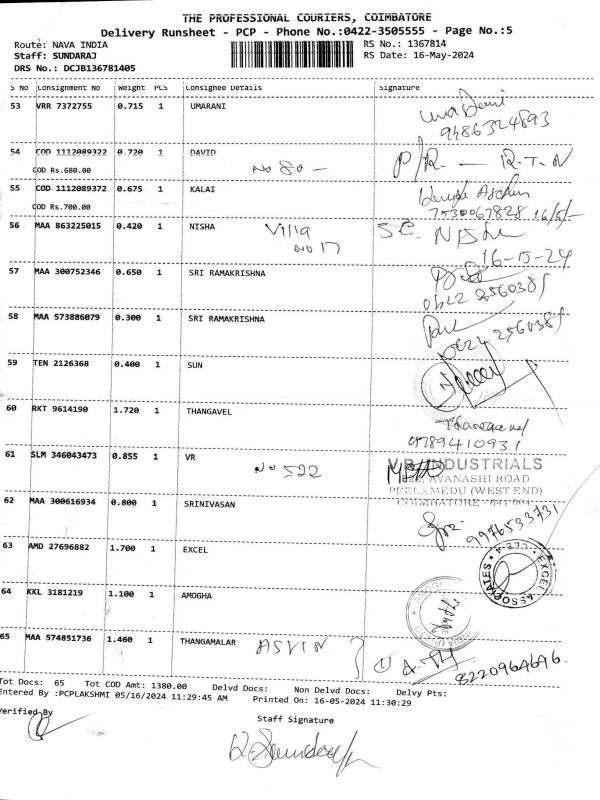 THE PROFESSIONAL COURIERS, COIMBATORE
Delivery Runsheet - PCP - Phone No.:0422-3505555 - Page No.:5
Route: NAVA INDIA
RS No.: 1367814
Staff: SUNDARAJ
RS Date: 16-May-2024
DRS No.: DCJB136781405
S No Consignment No Weight PCS Consignee Details Signature
53 VRR 7372755 0.715 1 UMARANI
9486324893
54 COD 1112089322 0.720 1 DAVID P/R. - R.T.N
COD Rs.680.00 No 80 -
55 COD 1112089372 0.675 1 KALAI
COD Rs.700.00 7530067828 16/5/-
56 MAA 863225015 0.420 1 NISHA Villa No 17
16-5-24
57 MAA 300752346 0.650 1 SRI RAMAKRISHNA
58 MAA 573886079 0.300 1 SRI RAMAKRISHNA
59 TEN 2126368 0.400 1 SUN
60 RKT 9614190 1.720 1 THANGAVEL
9789410931
61 SLM 346043473 0.855 1 VR No 522
V.R. INDUSTRIALS
522, AVANASHI ROAD
PEELAMEDU (WEST END)
COIMBATORE - 641 004
62 MAA 300616934 0.800 1 SRINIVASAN
9976533731
63 AMD 27696882 1.700 1 EXCEL
EXCEL ASSOCIATES
64 KKL 3181219 1.100 1 AMOGHA
65 MAA 574851736 1.460 1 THANGAMALAR ASVIN
8220964696.
Tot Docs: 65 Tot COD Amt: 1380.00 Delvd Docs: Non Delvd Docs: Delvy Pts:
Entered By :PCPLAKSHMI 05/16/2024 11:29:45 AM Printed On: 16-05-2024 11:30:29
Verified By
Staff Signature